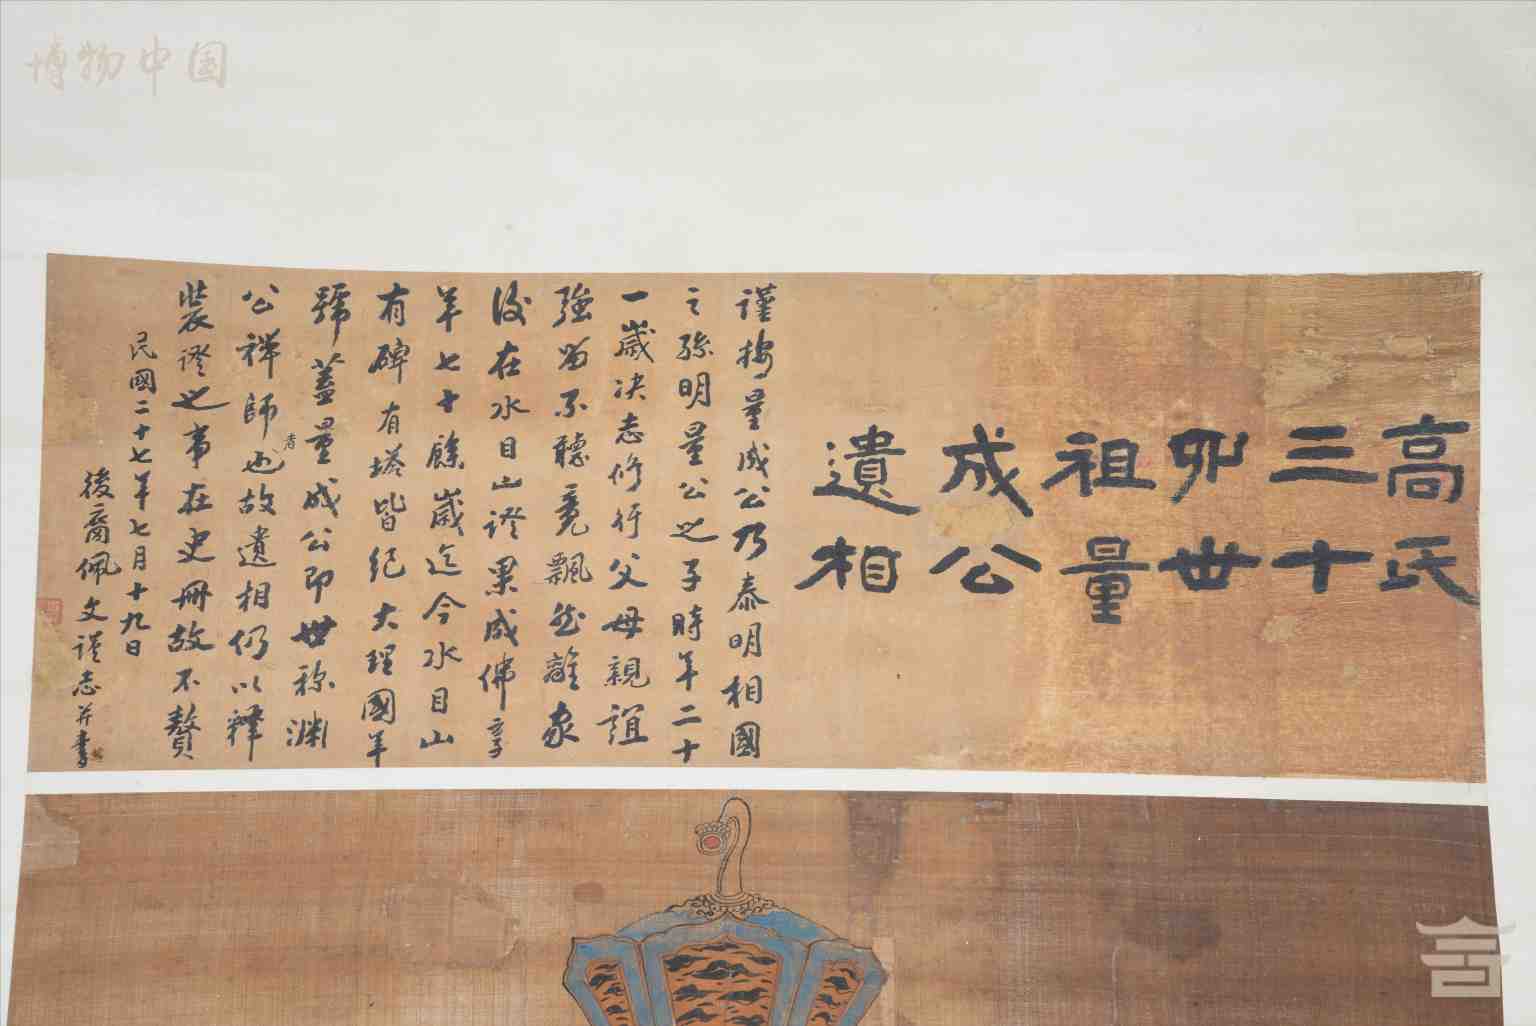 博物中国
高氏
三十
卯世
祖量
成公
遺相
謹按量成公乃泰明相國
之孫明量公之子時年二十
一歲决志修行父母親誼
強留不聽竟飄然離家
後在水目山證果成佛享
年七十餘歲迄今水目山
有碑有塔皆紀大理國年
號蓋量成公即世称渊
公禅師也者故遺相仍以釋
裝證也事在史冊故不贅
民國二十七年七月十九日
後裔佩文謹志并書